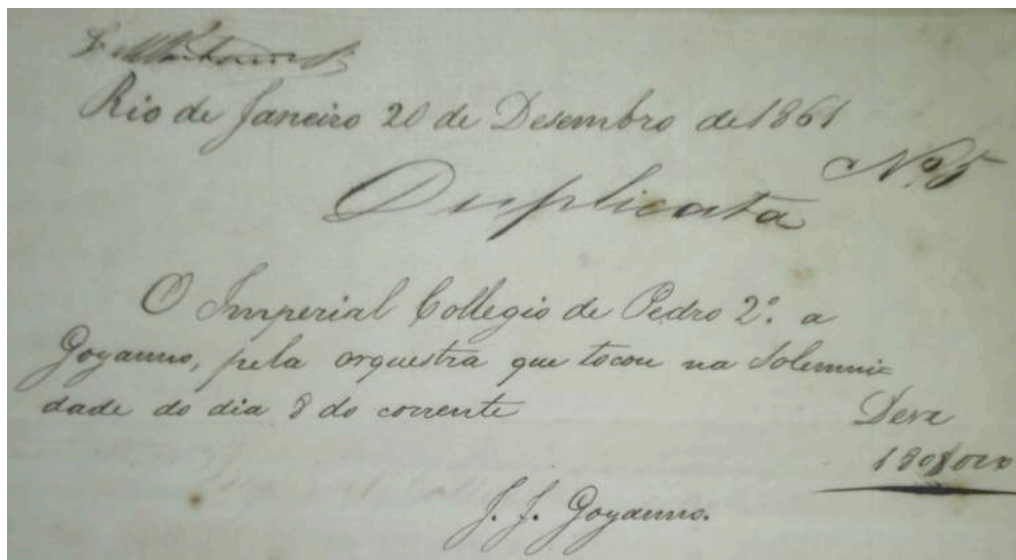 Rio de Janeiro 20 de Desembro de 1861
Nº 5
Duplicata
O Imperial Collegio de Pedro 2º. a
Goyanno, pela orquestra que tocou na Solemni=
dade do dia 8 do corrente
Deve
180$000
J. J. Goyanno.